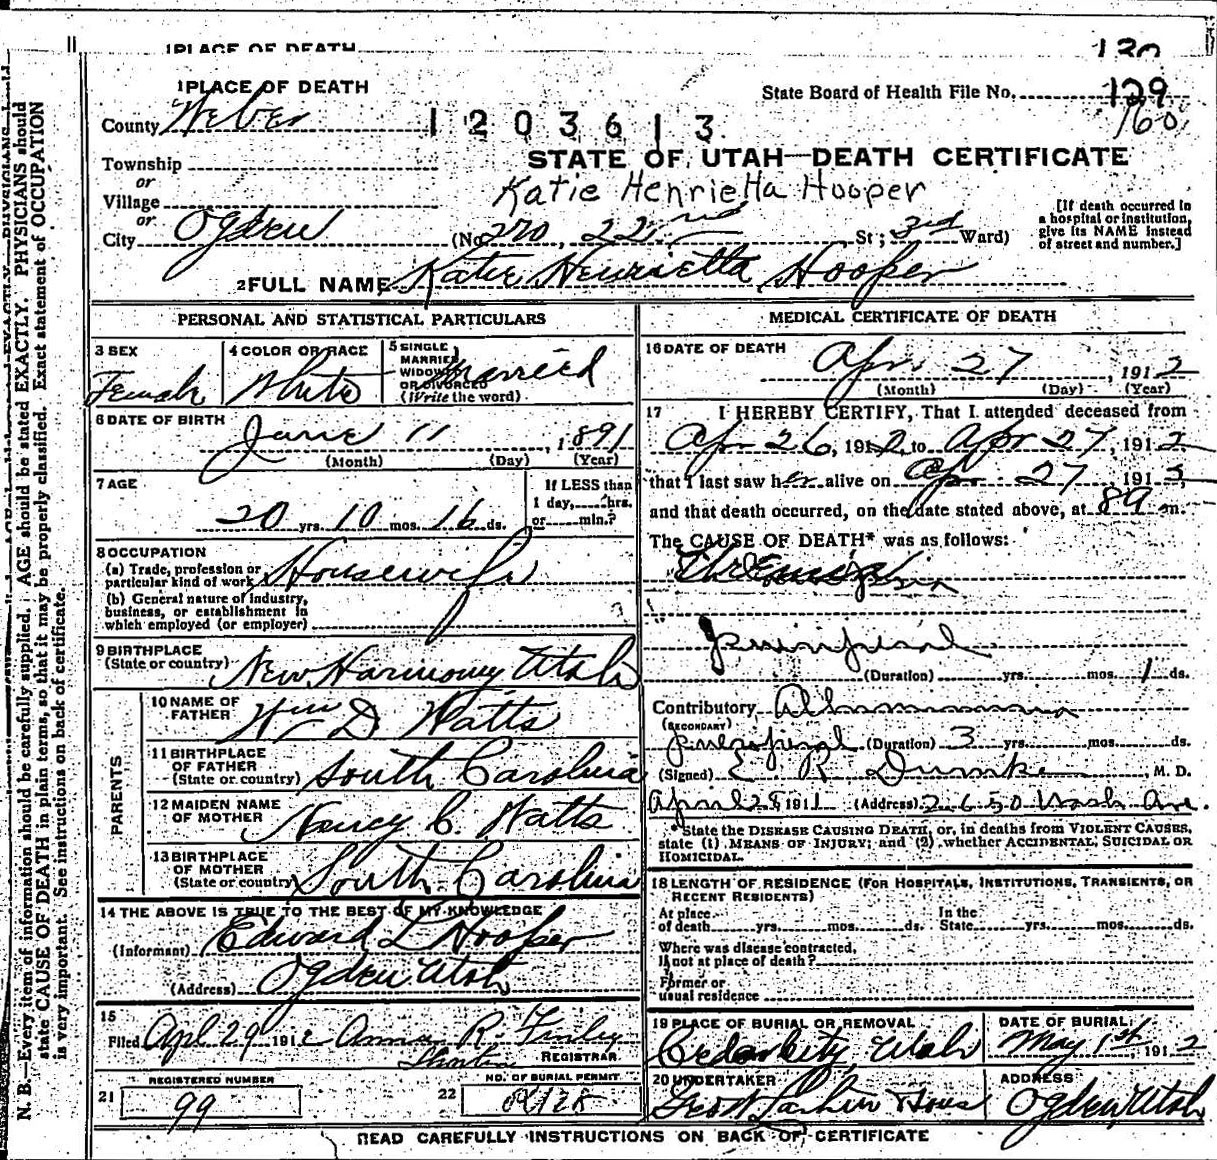 II
1 PLACE OF DEATH
130
1 PLACE OF DEATH
State Board of Health File No. 129
160
County Weber
1203613
STATE OF UTAH—DEATH CERTIFICATE
Township
or
Katie Henrietta Hooper
Village
or
City Ogden (No. 270, 22nd St; 3rd Ward)
[If death occurred in a hospital or institution, give its NAME instead of street and number.]
2 FULL NAME Katie Henrietta Hooper
PERSONAL AND STATISTICAL PARTICULARS
3 SEX
Female
4 COLOR OR RACE
White
5 SINGLE
MARRIED
WIDOWED
OR DIVORCED
(Write the word)
Married
6 DATE OF BIRTH
June 11, 1891
(Month) (Day) (Year)
7 AGE
20 yrs. 10 mos. 16 ds.
If LESS than
1 day, hrs.
or min.?
8 OCCUPATION
(a) Trade, profession or
particular kind of work Housewife
(b) General nature of industry,
business, or establishment in
which employed (or employer)
9 BIRTHPLACE
(State or country) New Harmony Utah
PARENTS
10 NAME OF
FATHER Wm D Watts
11 BIRTHPLACE
OF FATHER
(State or country) South Carolina
12 MAIDEN NAME
OF MOTHER Nancy C. Watts
13 BIRTHPLACE
OF MOTHER
(State or country) South Carolina
14 THE ABOVE IS TRUE TO THE BEST OF MY KNOWLEDGE
(Informant) Edward L Hooper
(Address) Ogden Utah
15
Filed Apl 29 1912 Anna R. Finley
REGISTRAR
REGISTERED NUMBER
21 99
NO. OF BURIAL PERMIT
22
MEDICAL CERTIFICATE OF DEATH
16 DATE OF DEATH
Apr. 27, 1912
(Month) (Day) (Year)
17 I HEREBY CERTIFY, That I attended deceased from
Apr 26, 1912, to Apr 27, 1912
that I last saw her alive on Apr. 27 1912,
and that death occurred, on the date stated above, at m.
The CAUSE OF DEATH* was as follows:
(Duration) yrs. mos. 1 ds.
Contributory
(SECONDARY)
(Duration) 3 yrs. mos. ds.
(Signed) E. R. Dumke, M. D.
April 28 1911 (Address) 2650 Wash Ave.
*State the DISEASE CAUSING DEATH, or, in deaths from VIOLENT CAUSES,
state (1) MEANS OF INJURY; and (2) whether ACCIDENTAL, SUICIDAL OR
HOMICIDAL.
18 LENGTH OF RESIDENCE (FOR HOSPITALS, INSTITUTIONS, TRANSIENTS, OR
RECENT RESIDENTS)
At place
of death yrs. mos. ds.
In the
State yrs. mos. ds.
Where was disease contracted,
If not at place of death?
Former or
usual residence
19 PLACE OF BURIAL OR REMOVAL
Cedar City, Utah
DATE OF BURIAL
May 1st, 1912
20 UNDERTAKER
ADDRESS
Ogden, Utah
READ CAREFULLY INSTRUCTIONS ON BACK OF CERTIFICATE
N. B.—Every item of information should be carefully supplied. AGE should be stated EXACTLY. PHYSICIANS should
state CAUSE OF DEATH in plain terms, so that it may be properly classified. Exact statement of OCCUPATION
is very important. See instructions on back of certificate.